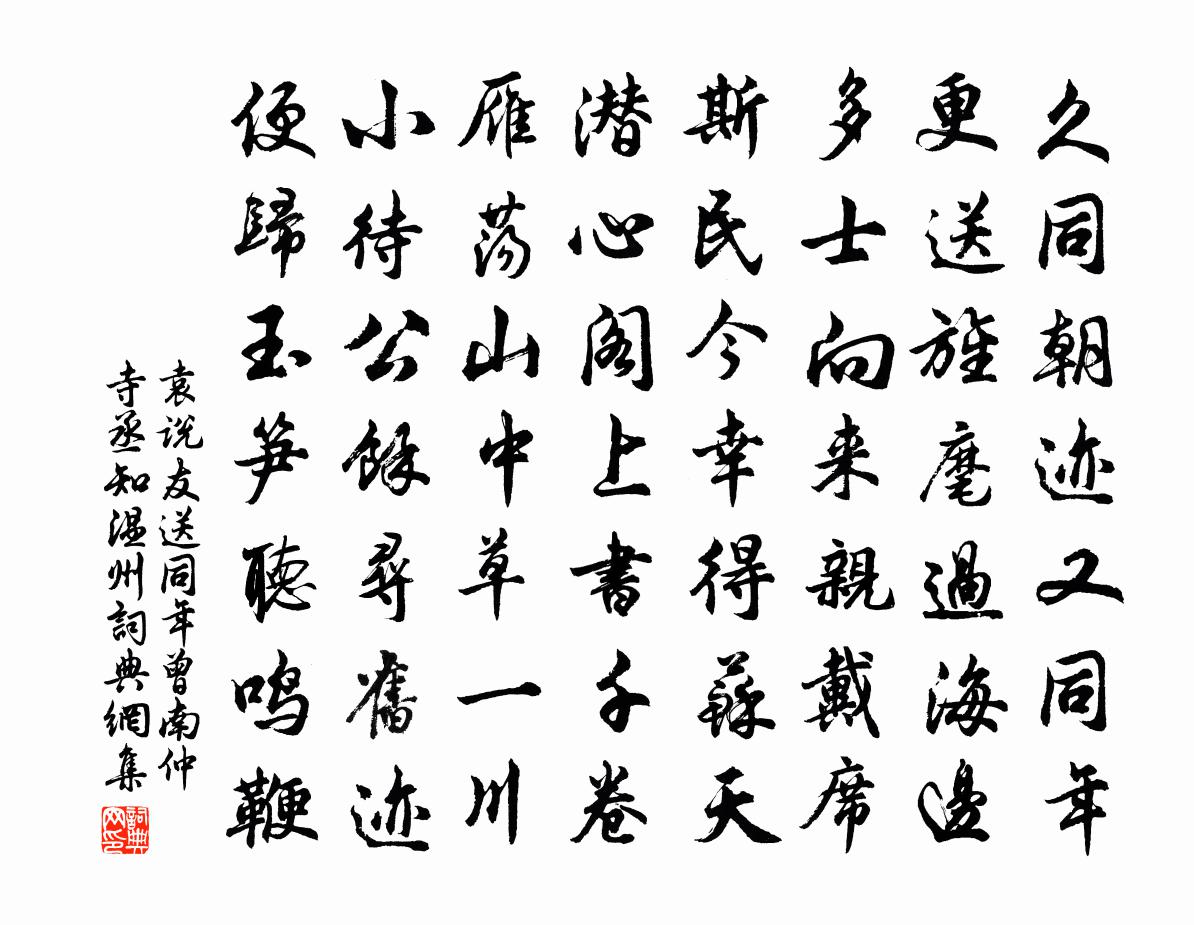 久同朝迹又同年
更送旌麾過海邊
多士向来親戴席
斯民今幸得蘇天
潜心阁上書千卷
雁荡山中草一川
小待公餘尋舊迹
便歸玉笋聴鸣鞭
袁说友送同年曾南仲
寺丞知温州詞典網集
詞典
网印